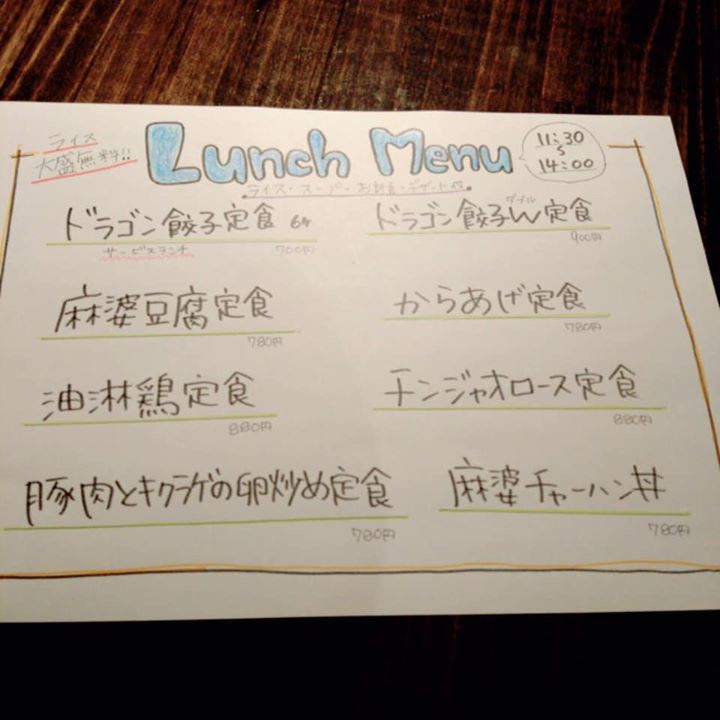 ライス
大盛無料!!
Lunch Menu
11:30
〜
14:00
ライス・スープ・お新香・デザート付
ドラゴン餃子定食 6ケ
サービスランチ
700円
ダブル
ドラゴン餃子W定食
900円
麻婆豆腐定食
780円
からあげ定食
780円
油淋鶏定食
880円
チンジャオロース定食
880円
豚肉とキクラゲの卵炒め定食
780円
麻婆チャーハン丼
780円